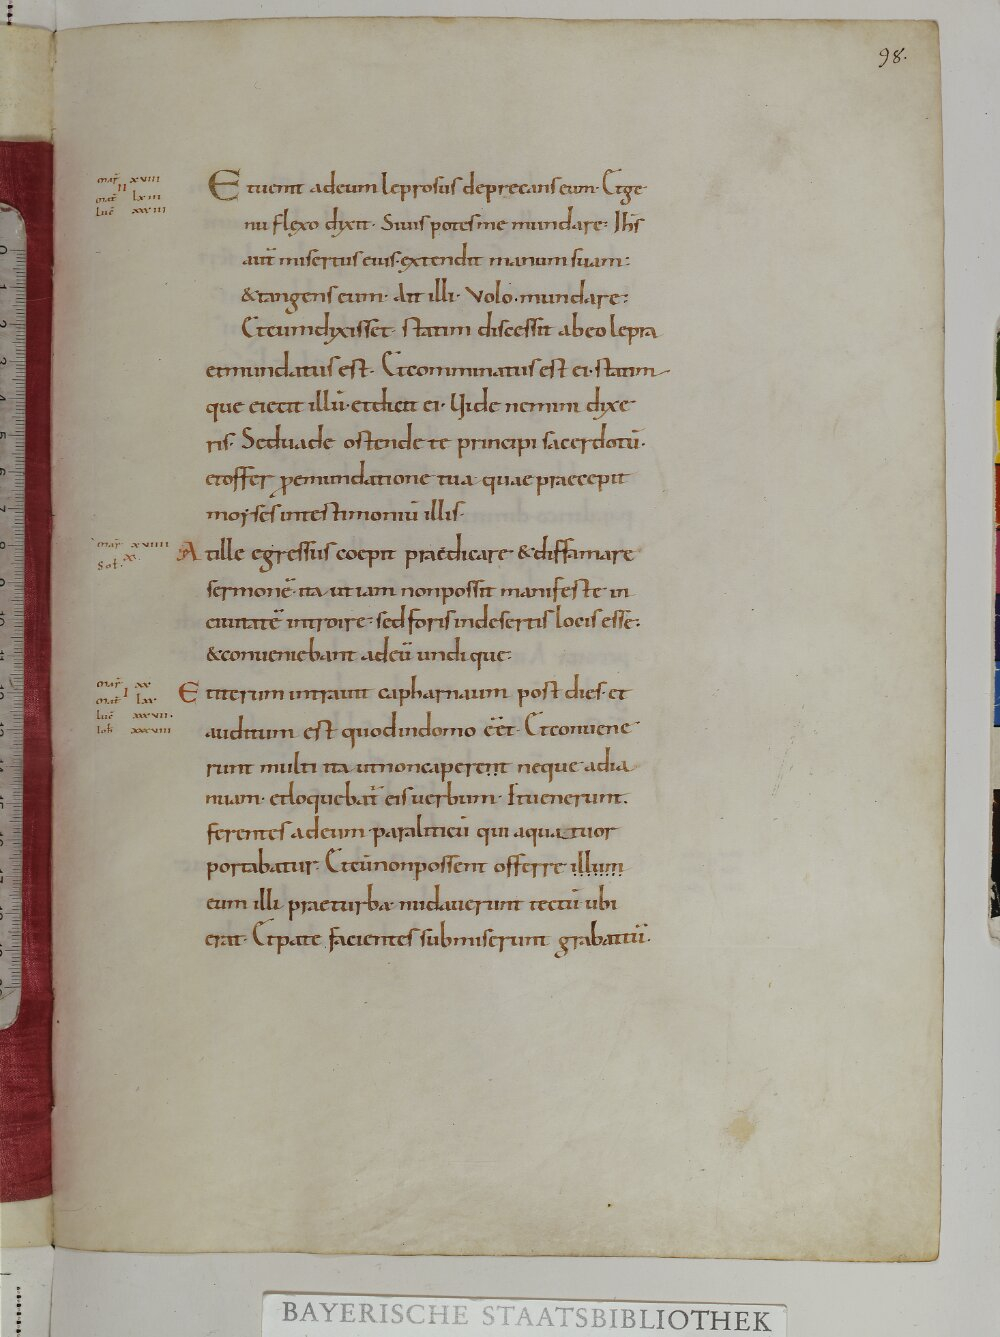 98.
mar̄ xviii
II
mat̄ lxiii
luc̄ xxxiii
Et uenit ad eum leprosus deprecans eum· Et ge
nu flexo dixit· Si uis potes me mundare· Ih̄s
aut̄ misertus eius· extendit manum suam:
& tangens eum· Ait illi· Volo· mundare:
Et cum dixisset· statim discessit ab eo lepra
et mundatus est· Et comminatus est ei· statim
que eiecit illū· et dicit ei· Uide nemini dixe
ris· Sed uade ostende te principi sacerdotū·
et offer p emundatione tua quae praecepit
moyses in testimoniū illis·
mar̄ xviiii
x·
Sol·
At ille egressus coepit praedicare· & diffamare
sermonē· ita ut iam non possit manifeste in
ciuitatē introire· sed foris in desertis locis esse:
& conueniebant ad eū undique:
mar̄ xx
I
mat̄ lxx
luc̄ xxxvii·
Ioh̄ xxxviii
Et iterum intrauit capharnaum post dies· et
auditum est quod in domo eēt· Et conuene
runt multi ita ut non caperent neque ad ia
nuam· et loquebat̄ eis uerbum· Et uenerunt·
ferentes ad eum paraliticū qui a quattuor
portabatur· Et cū non possent offerre illum
eum illi prae turba nudauerunt tectū ubi
erat· Et pate facientes submiserunt grabattū·
BAYERISCHE STAATSBIBLIOTHEK